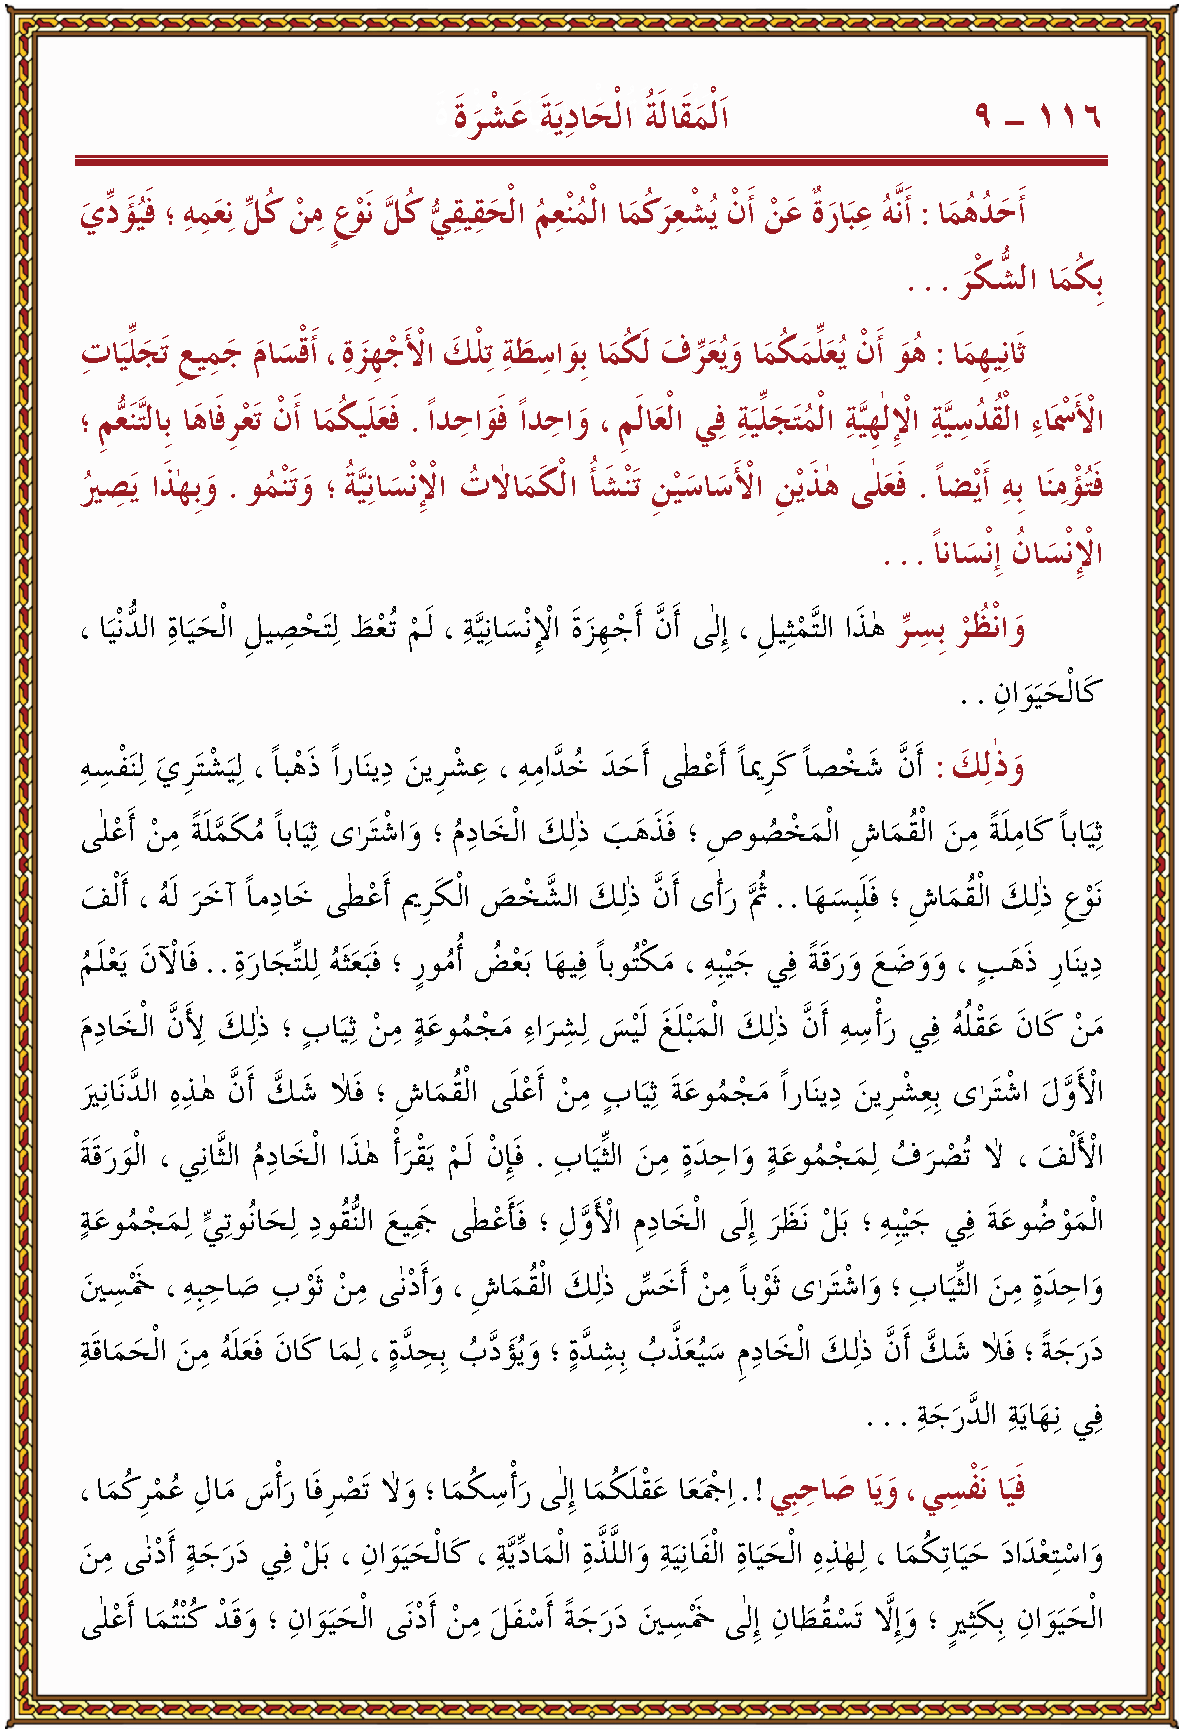 ١١٦ – ٩ اَلْمَقَالَةُ الْحَادِيَةَ عَشْرَةَ
أَحَدُهُمَا : أَنَّهُ عِبَارَةٌ عَنْ أَنْ يُشْعِرَكُمَا الْمُنْعِمُ الْحَقِيقِيُّ كُلَّ نَوْعٍ مِنْ كُلِّ نِعَمِهِ ؛ فَيُؤَدِّيَ
بِكُمَا الشُّكْرَ . . .
ثَانِيهِمَا : هُوَ أَنْ يُعَلِّمَكُمَا وَيُعَرِّفَ لَكُمَا بِوَاسِطَةِ تِلْكَ الْأَجْهِزَةِ ، أَقْسَامَ جَمِيعِ تَجَلِّيَاتِ
الْأَسْمَاءِ الْقُدُسِيَّةِ الْإِلٰهِيَّةِ الْمُتَجَلِّيَةِ فِي الْعَالَمِ ، وَاحِداً فَوَاحِداً . فَعَلَيْكُمَا أَنْ تَعْرِفَاهَا بِالتَّنَعُّمِ ؛
فَتُؤْمِنَا بِهِ أَيْضاً . فَعَلٰى هٰذَيْنِ الْأَسَاسَيْنِ تَنْشَأُ الْكَمَالَاتُ الْإِنْسَانِيَّةُ ؛ وَتَنْمُو . وَبِهٰذَا يَصِيرُ
الْإِنْسَانُ إِنْسَاناً . . .
وَانْظُرْ بِسِرِّ هٰذَا التَّمْثِيلِ ، إِلٰى أَنَّ أَجْهِزَةَ الْإِنْسَانِيَّةِ ، لَمْ تُعْطَ لِتَحْصِيلِ الْحَيَاةِ الدُّنْيَا ،
كَالْحَيَوَانِ . .
وَذٰلِكَ : أَنَّ شَخْصاً كَرِيماً أَعْطٰى أَحَدَ خُدَّامِهِ ، عِشْرِينَ دِينَاراً ذَهْباً ، لِيَشْتَرِيَ لِنَفْسِهِ
ثِيَاباً كَامِلَةً مِنَ الْقُمَاشِ الْمَخْصُوصِ ؛ فَذَهَبَ ذٰلِكَ الْخَادِمُ ؛ وَاشْتَرٰى ثِيَاباً مُكَمَّلَةً مِنْ أَعْلٰى
نَوْعِ ذٰلِكَ الْقُمَاشِ ؛ فَلَبِسَهَا . . ثُمَّ رَأٰى أَنَّ ذٰلِكَ الشَّخْصَ الْكَرِيمَ أَعْطٰى خَادِماً آخَرَ لَهُ ، أَلْفَ
دِينَارِ ذَهَبٍ ، وَوَضَعَ وَرَقَةً فِي جَيْبِهِ ، مَكْتُوباً فِيهَا بَعْضُ أُمُورٍ ؛ فَبَعَثَهُ لِلتِّجَارَةِ . . فَالْآنَ يَعْلَمُ
مَنْ كَانَ عَقْلُهُ فِي رَأْسِهِ أَنَّ ذٰلِكَ الْمَبْلَغَ لَيْسَ لِشِرَاءِ مَجْمُوعَةٍ مِنْ ثِيَابٍ ؛ ذٰلِكَ لِأَنَّ الْخَادِمَ
الْأَوَّلَ اشْتَرٰى بِعِشْرِينَ دِينَاراً مَجْمُوعَةَ ثِيَابٍ مِنْ أَعْلَى الْقُمَاشِ ؛ فَلَا شَكَّ أَنَّ هٰذِهِ الدَّنَانِيرَ
الْأَلْفَ ، لَا تُصْرَفُ لِمَجْمُوعَةٍ وَاحِدَةٍ مِنَ الثِّيَابِ . فَإِنْ لَمْ يَقْرَأْ هٰذَا الْخَادِمُ الثَّانِي ، الْوَرَقَةَ
الْمَوْضُوعَةَ فِي جَيْبِهِ ؛ بَلْ نَظَرَ إِلَى الْخَادِمِ الْأَوَّلِ ؛ فَأَعْطٰى جَمِيعَ النُّقُودِ لِحَانُوتِيٍّ لِمَجْمُوعَةٍ
وَاحِدَةٍ مِنَ الثِّيَابِ ؛ وَاشْتَرٰى ثَوْباً مِنْ أَخَسِّ ذٰلِكَ الْقُمَاشِ ، وَأَدْنٰى مِنْ ثَوْبِ صَاحِبِهِ ، خَمْسِينَ
دَرَجَةً ؛ فَلَا شَكَّ أَنَّ ذٰلِكَ الْخَادِمَ سَيُعَذَّبُ بِشِدَّةٍ ؛ وَيُؤَدَّبُ بِحِدَّةٍ ، لِمَا كَانَ فَعَلَهُ مِنَ الْحَمَاقَةِ
فِي نِهَايَةِ الدَّرَجَةِ . . .
فَيَا نَفْسِي ، وَيَا صَاحِبِي ! . اِجْمَعَا عَقْلَكُمَا إِلٰى رَأْسِكُمَا ؛ وَلَا تَصْرِفَا رَأْسَ مَالِ عُمْرِكُمَا ،
وَاسْتِعْدَادَ حَيَاتِكُمَا ، لِهٰذِهِ الْحَيَاةِ الْفَانِيَةِ وَاللَّذَّةِ الْمَادِّيَّةِ ، كَالْحَيَوَانِ ، بَلْ فِي دَرَجَةٍ أَدْنٰى مِنَ
الْحَيَوَانِ بِكَثِيرٍ ؛ وَإِلَّا تَسْقُطَانِ إِلٰى خَمْسِينَ دَرَجَةً أَسْفَلَ مِنْ أَدْنَى الْحَيَوَانِ ؛ وَقَدْ كُنْتُمَا أَعْلٰى